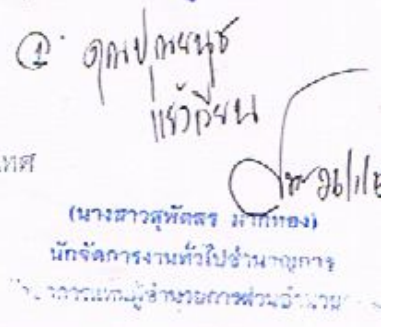 ① คุณปุณยนุช
แจ้งเวียน
เทศ
(นางสาวสุพัตสร มากทอง)
นักจัดการงานทั่วไปชำนาญการ
รักษาการแทนผู้อำนวยการส่วนอำนวย